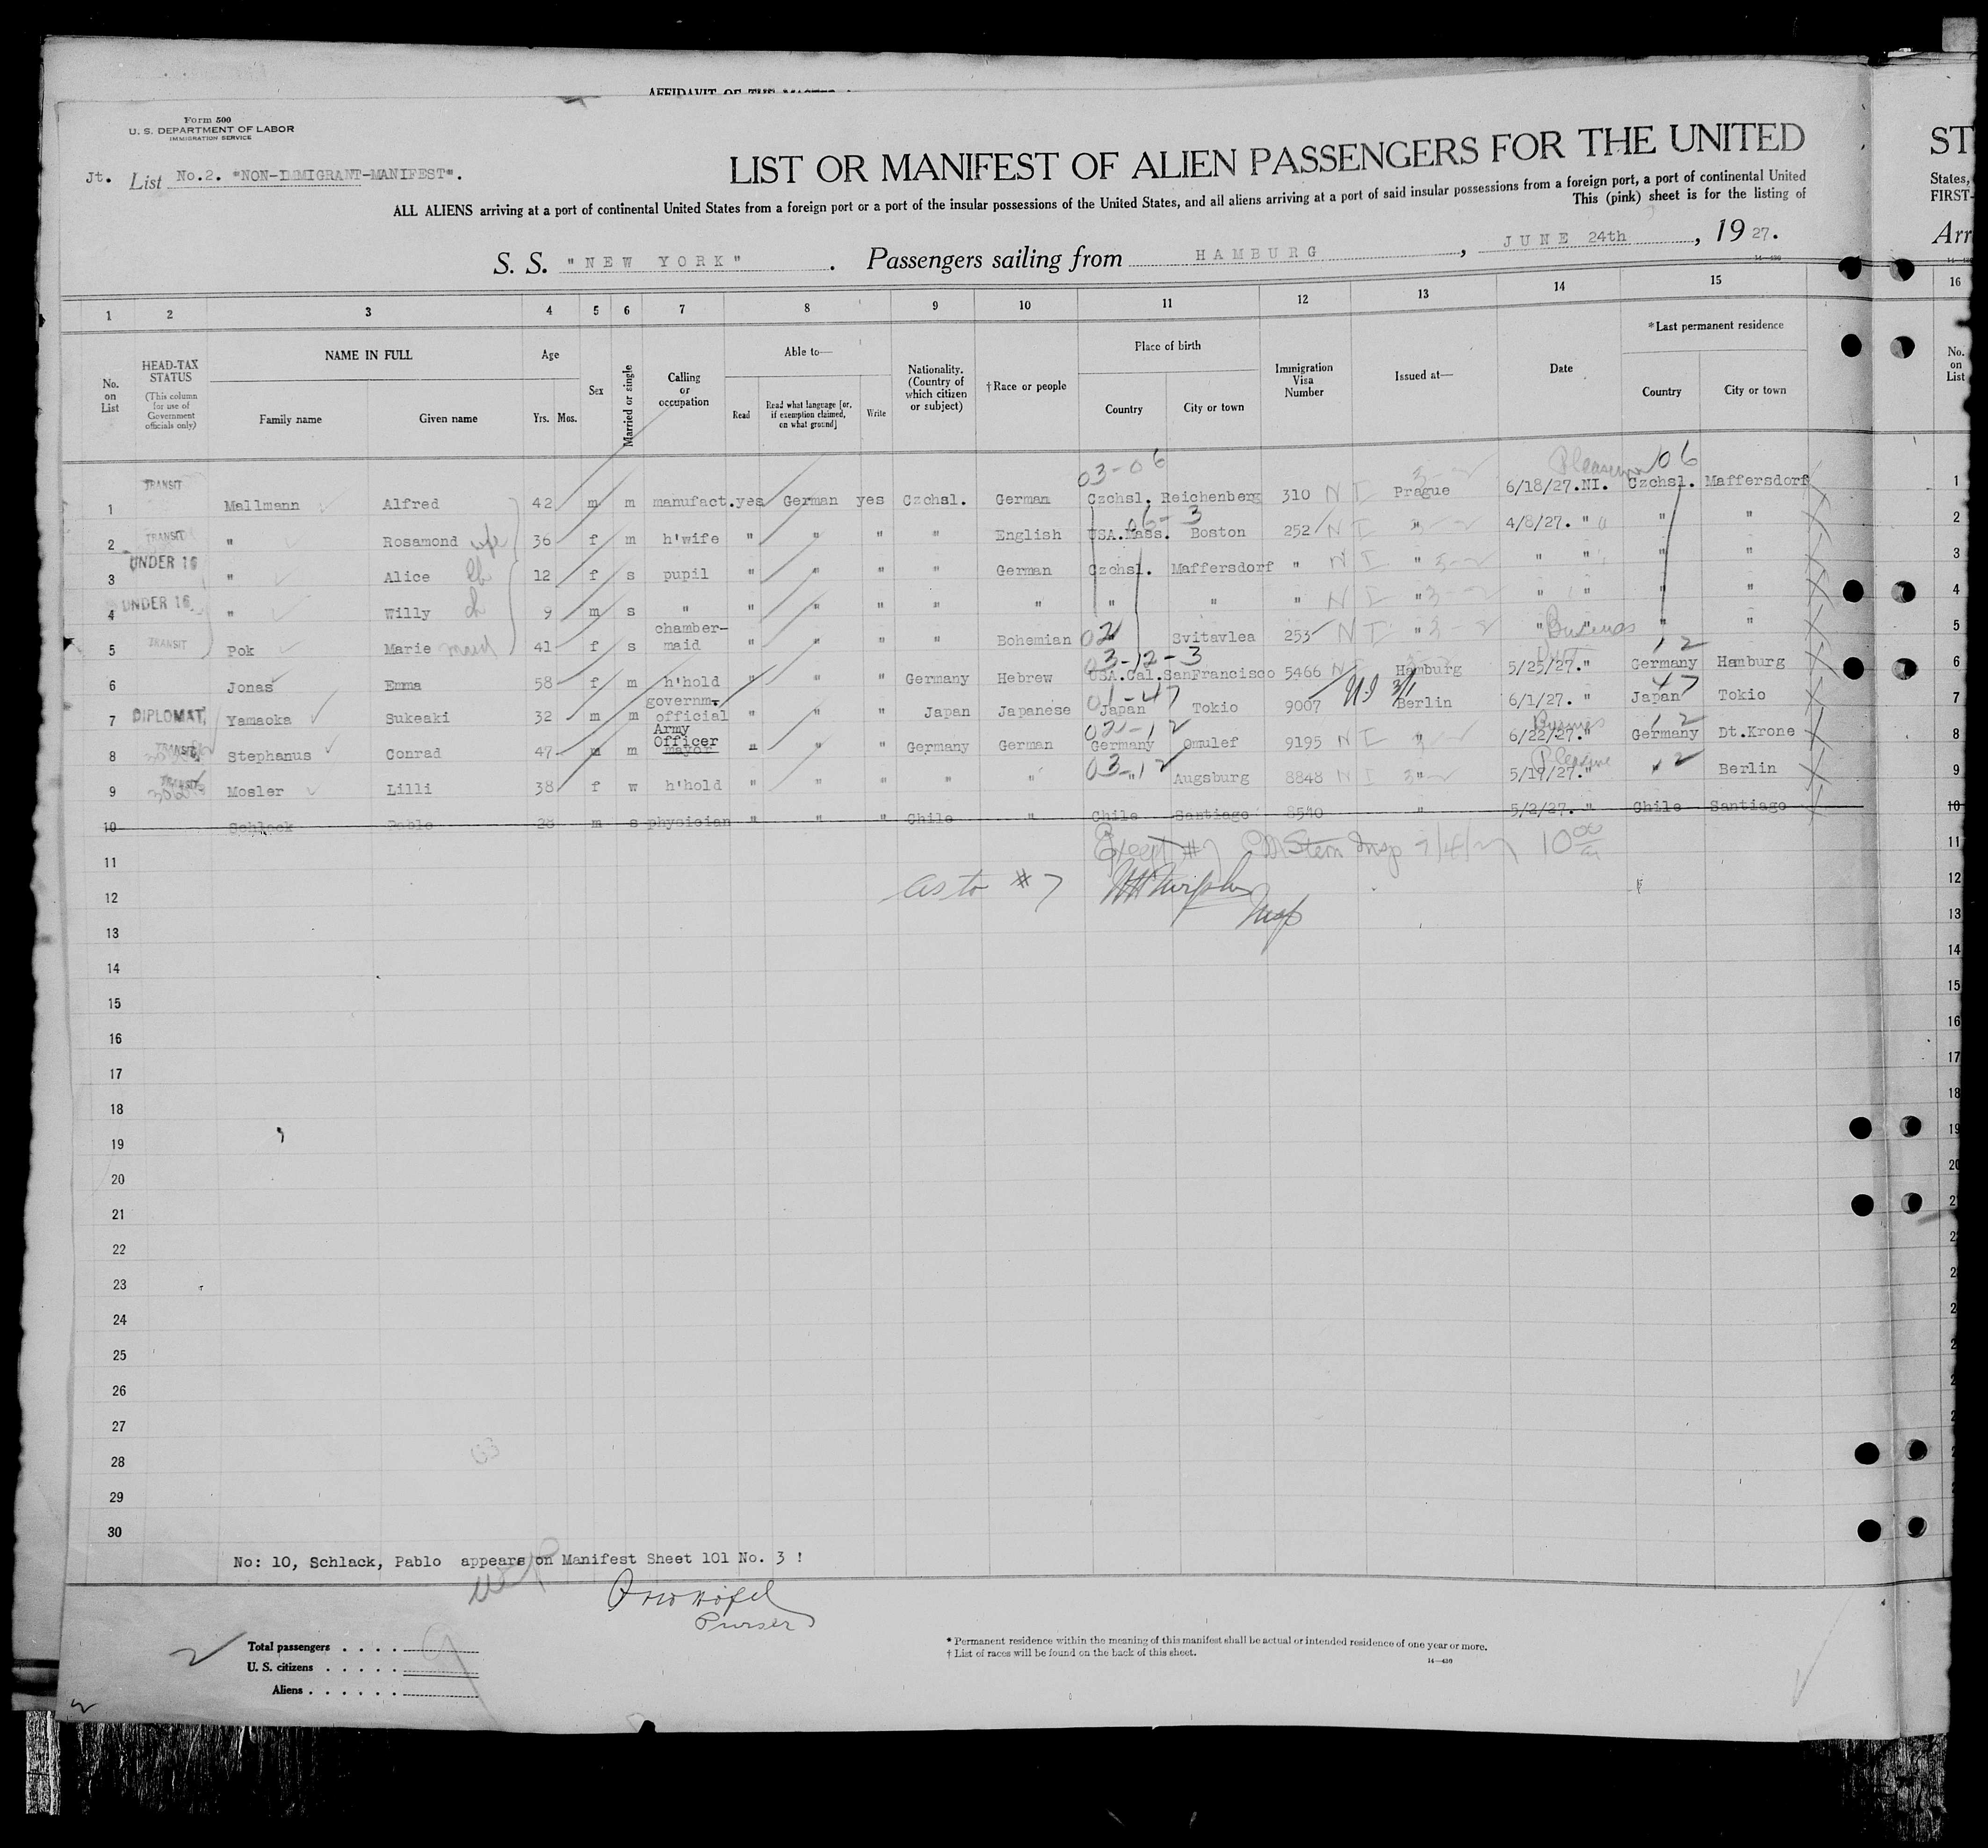 AFFIDAVIT OF THE MASTER
Form 500
U. S. DEPARTMENT OF LABOR
IMMIGRATION SERVICE
Jt. List No.2. "NON-IMMIGRANT-MANIFEST".
LIST OR MANIFEST OF ALIEN PASSENGERS FOR THE UNITED
ST
ALL ALIENS arriving at a port of continental United States from a foreign port or a port of the insular possessions of the United States, and all aliens arriving at a port of said insular possessions from a foreign port, a port of continental United
States,
This (pink) sheet is for the listing of
FIRST-
S. S. "NEW YORK". Passengers sailing from HAMBURG, JUNE 24th, 19 27.
Arr
1 2 3 4 5 6 7 8 9 10 11 12 13 14 15 16
No. on List
HEAD-TAX STATUS
(This column for use of Government officials only)
NAME IN FULL
Family name Given name
Age
Yrs. Mos.
Sex
Married or single
Calling or occupation
Able to—
Read Read what language [or, if exemption claimed, on what ground] Write
Nationality. (Country of which citizen or subject)
†Race or people
Place of birth
Country City or town
Immigration Visa Number
Issued at—
Date
*Last permanent residence
Country City or town
No. on List
03-06 Pleasure 06
1 TRANSIT Mallmann Alfred 42 m m manufact. yes German yes Czchsl. German Czchsl. Reichenberg 310 NI Prague 6/18/27.NI. Czchsl. Maffersdorf 1
06-3
2 TRANSIT " Rosamond wife 36 f m h'wife " " " " English USA.Mass. Boston 252 NI " 4/8/27. " " " 2
3 UNDER 16 " Alice ch 12 f s pupil " " " " German Czchsl. Maffersdorf " NI " " " " " 3
4 UNDER 16 " Willy ch 9 m s " " " " " " " " " NI " " " " " 4
5 TRANSIT Pok Marie maid 41 f s chamber-maid " " " " Bohemian 02 " Svitavlea 253 NI " " " Business " " 5
03-12-3 12
6 Jonas Emma 58 f m h'hold " " " Germany Hebrew USA.Cal. SanFrancisco 5466 NI Hamburg 5/25/27." Germany Hamburg 6
01-47 47
7 DIPLOMAT Yamaoka Sukeaki 32 m m governm. official " " " Japan Japanese Japan Tokio 9007 NI Berlin 6/1/27. " Japan Tokio 7
02-12 Business 12
8 TRANSIT Stephanus Conrad 47 m m Army Officer mayor " " " Germany German Germany Omulef 9195 NI " 6/22/27." Germany Dt.Krone 8
03-12 Pleasure 12
9 TRANSIT Mosler Lilli 38 f w h'hold " " " " " " Augsburg 8848 NI " 5/17/27." " Berlin 9
10 Schlack Pablo 28 m s physician " " " Chile " Chile Santiago 8540 " 5/2/27. " Chile Santiago 10
11 Except #7 Stern Insp 7/4/27 10 00 11
12 as to #7 Insp 12
13 13
14 14
15 15
16 16
17 17
18 18
19 19
20 20
21
22
23
24
25
26
27
28
29
30
No: 10, Schlack, Pablo appears on Manifest Sheet 101 No. 3 !
Purser
Total passengers . . . . 9
U. S. citizens . . . . .
Aliens . . . . . .
* Permanent residence within the meaning of this manifest shall be actual or intended residence of one year or more.
† List of races will be found on the back of this sheet.
14—430